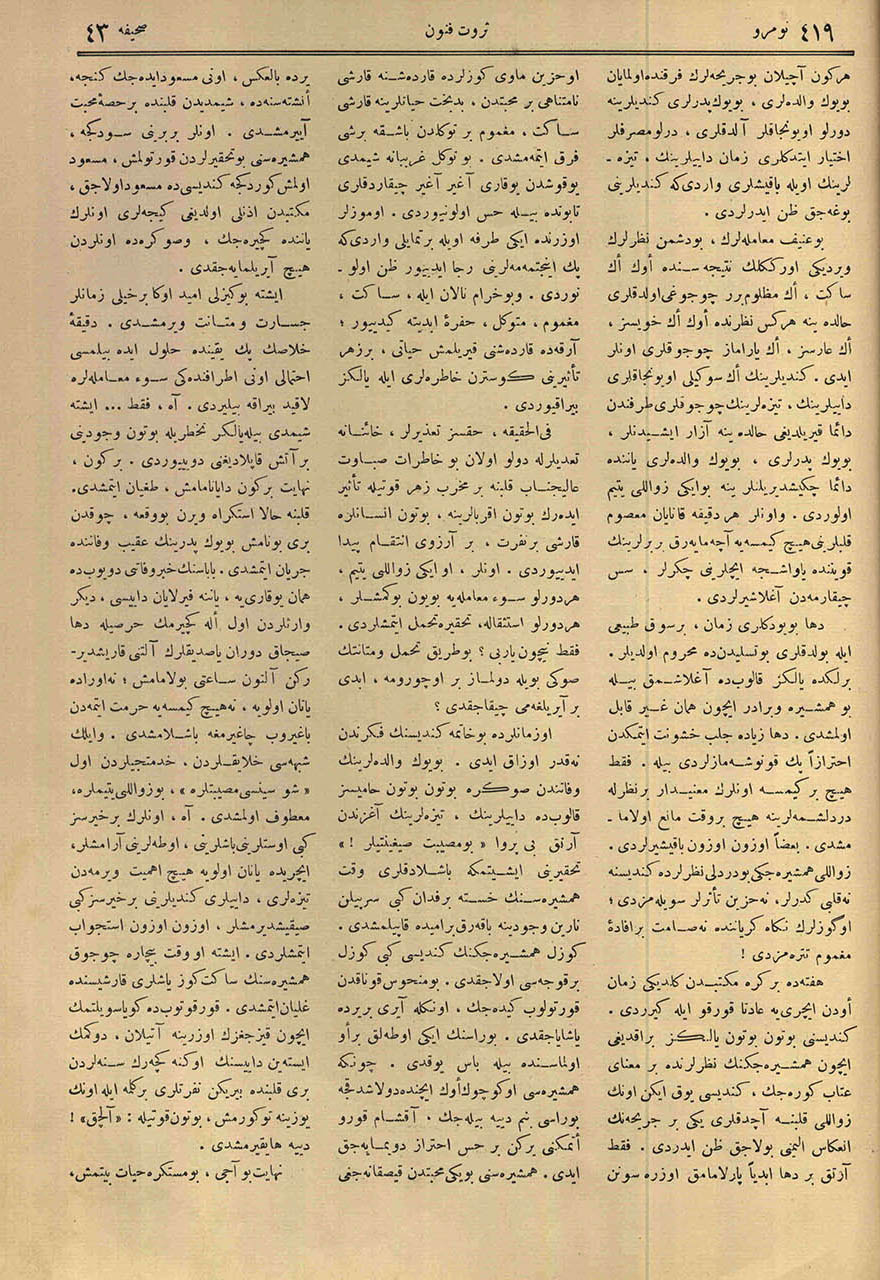 نومرو ٤١٩
ثروت فنون
صحیفه ٤٣
هركون آچیلان بوجریحه‌لرك فرقنده‌اولمایان
بویوك والده‌لری ، بویوك‌پدرلری كندیلرینه
دورلو اویونجاقلر آلدقلری ، درلومصرفلر
اختیار ایتدكلری زمان داییلرینك ، تیزه ـ
لرینك اویله باقیشلری واردی‌كه كندیلرینی
بوغه‌جق ظن ایدرلردی .
بوعنیف معامله‌لرك ، بودشمن نظرلرك
ویردیكی اورككلك نتیجه‌سنده اوك أك
ساكت ، أك مظلوم‌برر چوجوغی‌اولدقلری
حالده ینه هركس نظرنده اوك أك خویسز ،
أك عارسز ، أك یاراماز چوجوقلری اونلر
ایدی . كندیلرینك أك سوكیلی اویونجاقلری
داییلرینك ، تیزه‌لرینك‌چوجوقلری‌طرفندن
دائما قیریلدیغی حالده ینه آزار ایشیدنلر ،
بویوك پدرلری ، بویوك والده‌لری یاننده
دائما چكیشدیریلنلر ینه بوایكی زواللی یتیم
اولوردی . واونلر هردقیقه قانایان معصوم
قلبلرینی‌هیچ كیمسه‌یه آچه‌مایه‌رق بربرلرینك
قویننده یاواشجه ایچلرینی چكرلر ، سس
چیقارمه‌دن آغلاشیرلردی .
دها بویودكلری زمان ، برسوق طبیعی
ایله بولدقلری بوتسلیدن‌ده محروم اولدیلر .
برلكده یالكز قالوب‌ده آغلاشمق بیله
بو همشیره وبرادر ایچون همان غیر قابل
اولمشدی . دها زیاده جلب خشونت ایتمكدن
احترازاً پك قونوشه‌مازلردی بیله . فقط
هیچ بر كیمسه اونلرك معنیدار برنظرله
دردلشمه‌لرینه هیچ بروقت مانع اولاما ـ
مشدی . بعضاً اوزون اوزون باقیشیرلردی .
زواللی همشیره‌جكی‌بودردلی نظرلرده كندیسنه
نه‌قلی كدرلر، نه‌حزین تأثرلر سویله‌مزدی ؛
اوگوزلرك نكاه كریاننده نه‌صامت برافادهٔ
مغموم تتره‌مزدی !
هفته‌ده بركره مكتبدن كلدیكی زمان
أودن ایچری‌یه عادتا قورقو ایله كیرردی .
كندیسنی بوتون بوتون یالكز براقدیغی
ایچون همشیره‌جكنك نظرلرنده بر معنای
عتاب كوره‌جك ، كندیسی یوق ایكن اونك
زواللی قلبنه آچدقلری یكی بر جریحه‌نك
انعكاس الیمنی بولاجق ظن ایدردی . فقط
آرتق بر دها ابدیاً پارلامامق اوزره سونن
اوحزین ماوی كوزلرده قارده‌شنه قارشی
نامتناهی بر محبتدن ، بدبخت حیاتلرینه قارشی
ساكت ، مغموم بر توكلدن باشقه برشی
فرق ایتمه‌مشدی . بو توكل غریبانه شیمدی
یوقوشدن یوقاری آغیر آغیر چیقاردقلری
تابوتده بیله حس اولونیوردی . اوموزلر
اوزرنده ایكی طرفه اویله برتمایلی واردی‌كه
پك اینجتمه‌مه‌لرینی رجا ایدییور ظن اولو ـ
نوردی . وبوخرام نالان ایله ، ساكت ،
مغموم ، متوكل ، حفرهٔ ابدیته كیدییور ؛
آرقه‌ده قارده‌شنی قیریلمش حیاتی ، برزهر
تأثیرینی كوسترن خاطره‌لری ایله یالكز
بیراقیوردی .
فی‌الحقیقه ، حقسز تعذیرلر ، خائنانه
تعدیلرله دولو اولان بو خاطرات صباوت
عالیجناب قلبنه بر مخرب زهر قوتیله تأثیر
ایده‌رك بوتون اقربالرینه ، بوتون انسانلره
قارشی برنفرت ، بر آرزوی انتقام پیدا
ایدییوردی . اونلر ، او ایكی زواللی یتیم ،
هردورلو سوء معامله‌یه بویون بوكمشلر ،
هردورلو استثقاله، تحقیره‌تحمل ایتمشلردی .
فقط نیچون یاربی ؟ بوطریق تحمل ومتانتك
صوكی بویله دولماز بر اوچورومه ، ابدی
بر آیریلغه‌می چیقاجقدی ؟
اوزمانلرده بوخاتمه كندیسنك فكرندن
نه‌قدر اوزاق ایدی . بویوك والده‌لرینك
وفاتندن صوكره بوتون بوتون حامیسز
قالوب‌ده داییلرینك ، تیزه‌لرینك آغزندن
آرتق بی پروا « بومصیبت صیغینتیلر !»
تحقیرینی ایشیتمكه باشلادقلری وقت
همشیره‌سنك خسته برفدان كبی سرپیلن
نارین وجودینه باقه‌رق‌برامیده قاپیلمشدی .
كوزل همشیره‌جكنك كندیسی كبی كوزل
برقوجه‌سی اولاجقدی . بومنحوس قوناقدن
قورتولوب كیده‌جك ، اونكله آیری بریرده
یاشایاجقدی . بوراسنك ایكی اوطه‌لق برأو
اولماسنده بیله باس یوقدی . چونكه
همشیره‌سی اوكوچوك‌أوك ایچنده‌دولاشدقجه
بوراسی بنم دییه بیله‌جك . آقشام قورو
أتمكنی یركن بر حس احتراز دویمایه‌جق
ایدی . همشیره‌سنی بویكی محبتدن قیصقانه‌جغی
یرده بالعكس ، اونی مسعودایده‌جك كنجه ،
أنشته‌سنه‌ده ، شیمدیدن قلبنده برحصهٔ محبت
آییرمشدی . اونلر بربرینی سودكجه ،
همشیره‌سنی بوتحقیرلردن قورتولمش ، مسعود
اولمش كوردكجه كندیسی‌ده مسعوداولاجق ،
مكتبدن اذنلی اولدیغی كیجه‌لری اونلرك
یاننده كچیره‌جك ، وصوكره‌ده اونلردن
هیچ آیریلمایه‌جقدی .
ایشته بوكیزلی امید اوكا برخیلی زمانلر
جسارت ومتانت ویرمشدی . دقیقهٔ
خلاصك پك یقینده حلول ایده بیلمسی
احتمالی اونی اطرافنده‌كی سوء معامله‌لره
لاقید بیراقه بیلیردی . آه ، فقط ... ایشته
شیمدی بیله‌یالكز تخطریله بوتون وجودینی
برآتش قاپلادیغنی دویییوردی . بركون ،
نهایت بركون دایانامامش ، طغیان ایتمشدی.
قلبنه حالا استكراه ویرن بووقعه ، چوقدن
بری بونامش بویوك پدرینك عقیب وفاتنده
جریان ایتمشدی . باباسنك خبروفاتی دویوب‌ده
همان یوقاری‌یه ، یاننه فیرلایان داییسی ، دیكر
وارثلردن اول أله كچیرمك حرصیله دها
صیجاق دوران یاصدیقلرك آلتنی قاریشدیر-
ركن آلتون ساعتی بولامامش ؛ نه‌اوراده
یاتان اولویه ، نه‌هیچ كیمسه‌یه حرمت ایتمه‌دن
باغیروب چاغیرمغه باشلامشدی . وایلك
شبهه‌سی خلایقلردن ، خدمتجیلردن اول
« شو سینسی مصیبتلره » ، بوزواللی‌یتیملره،
معطوف اولمشدی . آه ، اونلرك برخیرسز
كبی اوستلرینی‌باشلرینی ، اوطه‌لرینی آرامشلر،
ایچریده یاتان اولویه هیچ اهمیت ویرمه‌دن
تیزه‌لری ، داییلری كندیلرینی برخیرسز كبی
صیقیشدیرمشلر ، اوزون اوزون استجواب
ایتمشلردی . ایشته او وقت بیچاره چوجوق
همشیره‌سنك ساكت‌كوز یاشلری قارشیسنده
غلیان‌ایتمشدی . قورقوتوب‌ده كویاسویلتمك
ایچون قیزجغزك اوزرینه آتیلان ، دوكمك
ایسته‌ین داییسنك اوكنه كچه‌رك سنه‌لردن
بری قلبنده بیریكن نفرتلری بركلمه ایله اونك
یوزینه توكورمش ، بوتون‌قوتیله : «آلچق» !
دییه هایقیرمشدی .
نهایت‌بو آجی ، بومستكره‌حیات بیتمش،